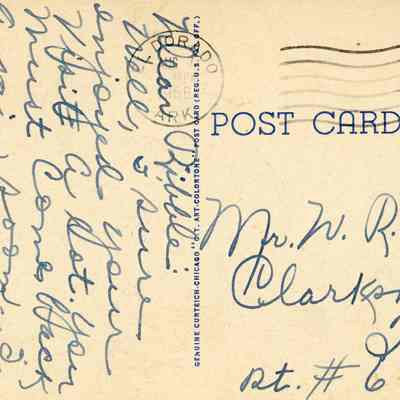 Dear Ribble:
Well, I sure
enjoyed your
visit a lot. You
must come back
soon
DORADO
ARK
GENUINE CURTEICH-CHICAGO "C.T. ART-COLORTONE" POST CARD (REG. U.S. PAT. OFF.)
POST CARD
Mr. W. R.
Clarks
Rt. #